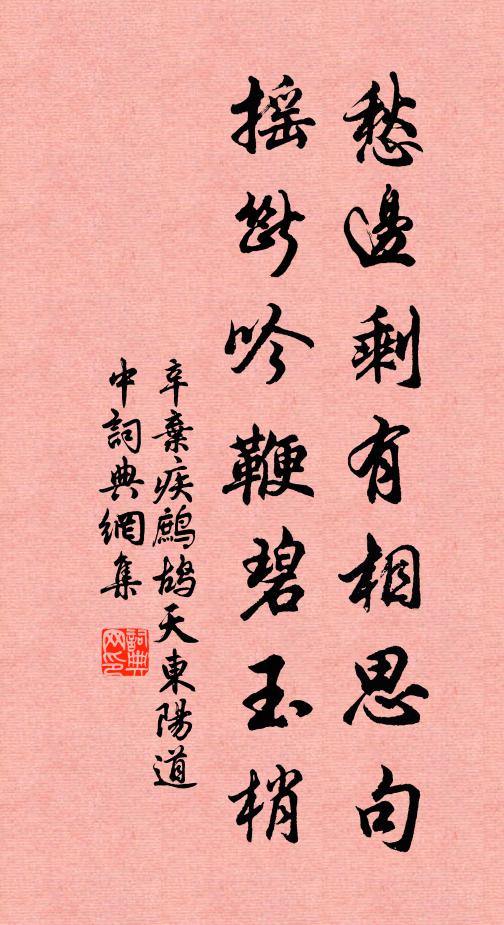 愁邊剩有相思句
搖斷吟鞭碧玉梢
辛棄疾鷓鴣天東陽道
中詞典網集
詞典
网印